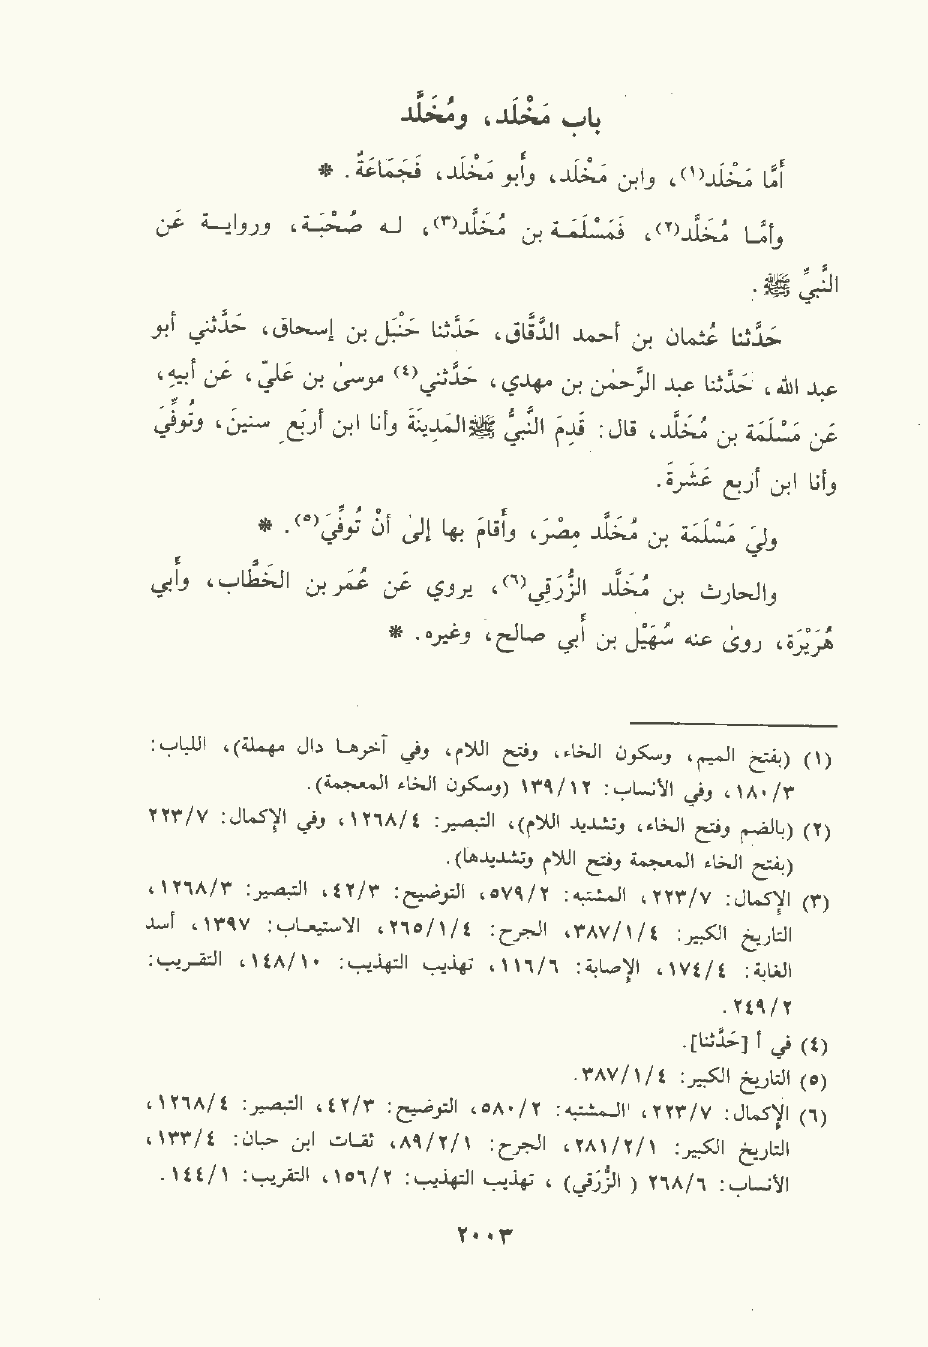 باب مَخْلَد، ومُخَلَّد
أَمَّا مَخْلَد(١)، وابن مَخْلَد، وأَبو مَخْلَد، فَجَمَاعَةٌ. *
وأمَّا مُخَلَّد(٢)، فَمَسْلَمَة بن مُخَلَّد(٣)، له صُحْبَة، ورواية عَن
النَّبيِّ ﷺ.
حَدَّثنا عُثمان بن أحمد الدَّقَّاق، حَدَّثنا حَنْبَل بن إسحاق، حَدَّثني أبو
عبد الله، حَدَّثنا عبد الرَّحمٰن بن مهدي، حَدَّثني(٤) موسىٰ بن عَليّ، عَن أبيهِ،
عَن مَسْلَمَة بن مُخَلَّد، قال: قَدِمَ النَّبيُّ ﷺ المَدِينَةَ وأنا ابن أَربَع سنينَ، وتُوفِّيَ
وأنا ابن أربع عَشَرةَ.
وليَ مَسْلَمَة بن مُخَلَّد مِصْرَ، وأَقامَ بها إلىٰ أنْ تُوفِّيَ(٥). *
والحارث بن مُخَلَّد الزُّرَقِي(٦)، يروي عَن عُمَر بن الخَطَّاب، وأَبي
هُرَيْرَة، روىٰ عنه سُهَيْل بن أَبي صالح، وغيره. *
(١) (بفتح الميم، وسكون الخاء، وفتح اللام، وفي آخرها دال مهملة)، اللباب:
٣/١٨٠، وفي الأنساب: ١٣٩/١٢ (وسكون الخاء المعجمة).
(٢) (بالضم وفتح الخاء، وتشديد اللام)، التبصير: ١٢٦٨/٤، وفي الإكمال: ٢٢٣/٧
(بفتح الخاء المعجمة وفتح اللام وتشديدها).
(٣) الإكمال: ٢٢٣/٧، المشتبه: ٥٧٩/٢، التوضيح: ٤٢/٣، التبصير: ١٢٦٨/٣،
التاريخ الكبير: ٣٨٧/١/٤، الجرح: ٢٦٥/١/٤، الاستيعاب: ١٣٩٧، أسد
الغابة: ١٧٤/٤، الإصابة: ١١٦/٦، تهذيب التهذيب: ١٤٨/١٠، التقريب:
٢٤٩/٢.
(٤) في أ [حَدَّثنا].
(٥) التاريخ الكبير: ٣٨٧/١/٤.
(٦) الإكمال: ٢٢٣/٧، المشتبه: ٥٨٠/٢، التوضيح: ٤٢/٣، التبصير: ١٢٦٨/٤،
التاريخ الكبير: ٢٨١/٢/١، الجرح: ٨٩/٢/١، ثقات ابن حبان: ١٣٣/٤،
الأنساب: ٢٦٨/٦ ( الزُّرَقي) ، تهذيب التهذيب: ١٥٦/٢، التقريب: ١٤٤/١.
٢٠٠٣